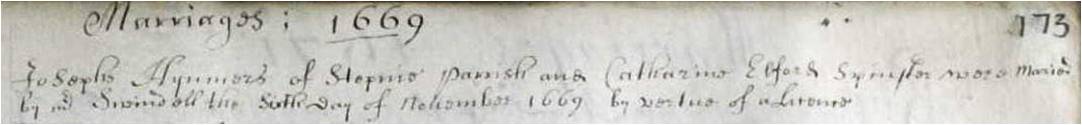 Marriages; 1669
173
Joseph Hynmers of Stepnie Parrish and Catharine Elford Spinster were Maried
by Swindell the Sixth day of November 1669 by vertue of a Licence